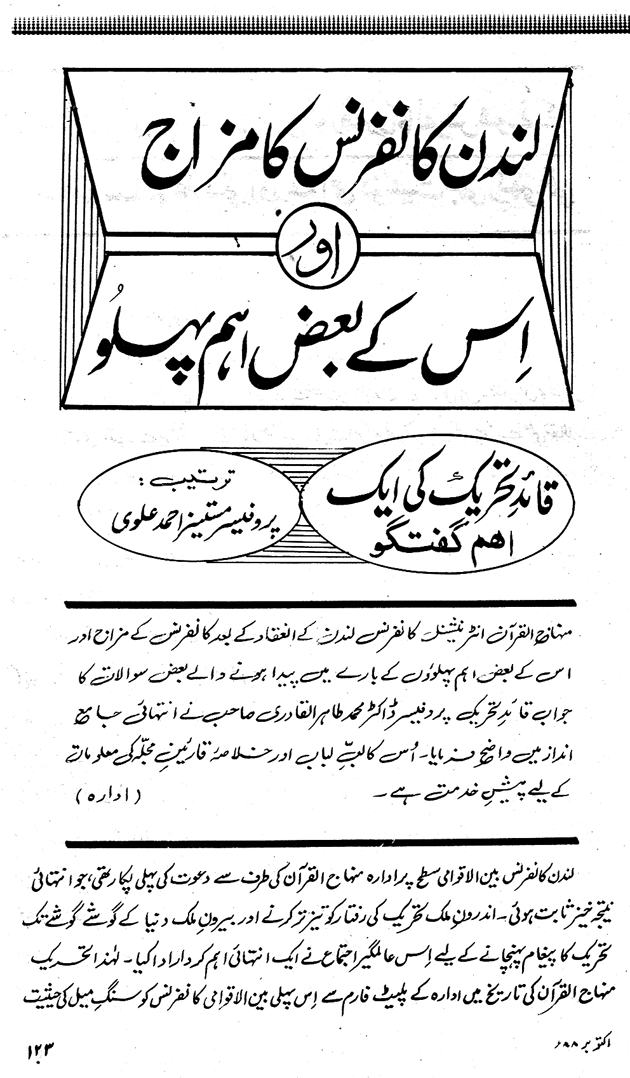 لندن کانفرنس کا مزاج
اور
اِس کے بعض اہم پہلُو
قائدِ تحریک کی ایک
اہم گفتگو
ترتیب:
پروفیسر مستنیر احمد علوی
منہاج القرآن انٹرنیشنل کانفرنس لندن کے انعقاد کے بعد کانفرنس کے مزاج اور
اس کے بعض اہم پہلوؤں کے بارے میں پیدا ہونے والے بعض سوالات کا
جواب قائدِ تحریک پروفیسر ڈاکٹر محمد طاہر القادری صاحب نے انتہائی جامع
انداز میں واضح فرمایا۔ اُس کا لبِّ لباب اور خلاصہ قارئینِ مجلّہ کی معلومات
کے لیے پیشِ خدمت ہے۔ (ادارہ)
لندن کانفرنس بین الاقوامی سطح پر ادارہ منہاج القرآن کی طرف سے دعوت کی پہلی پکار تھی، جو انتہائی
نتیجہ خیز ثابت ہوئی۔ اندرونِ ملک تحریک کی رفتار کو تیز تر کرنے اور بیرونِ ملک دنیا کے گوشے گوشے تک
تحریک کا پیغام پہنچانے کے لیے اِس عالمگیر اجتماع نے ایک انتہائی اہم کردار ادا کیا۔ لہٰذا تحریک
منہاج القرآن کی تاریخ میں ادارہ کے پلیٹ فارم سے اِس پہلی بین الاقوامی کانفرنس کو سنگِ میل کی حیثیت
اکتوبر ۸۸ء
۱۲۳